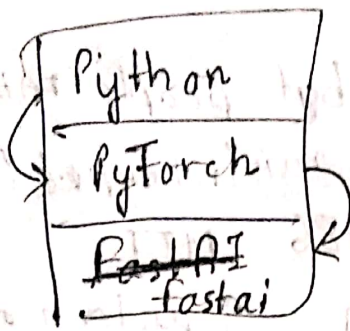 Python
PyTorch
FastAI
fastai